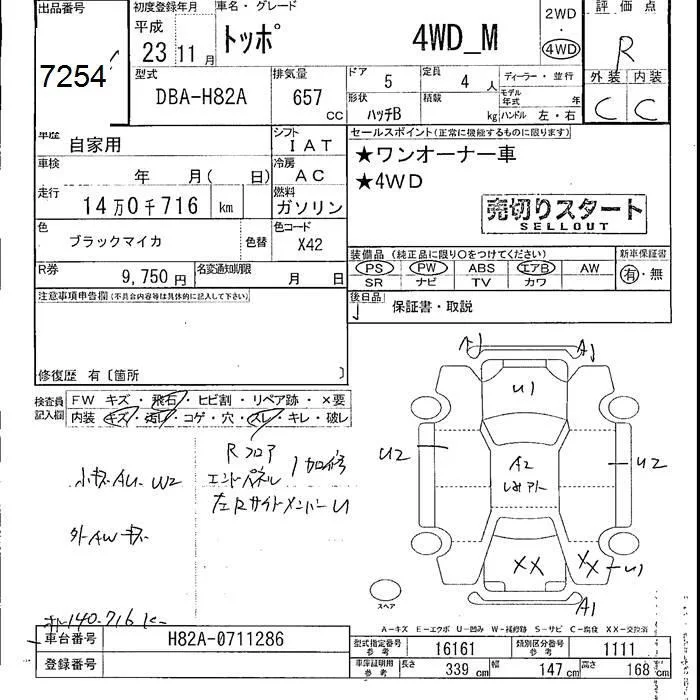 出品番号 初度登録年月 車名・グレード 2WD・4WD 評価点
7254 平成23 11月 トッポ 4WD_M R
型式 排気量 ドア 5 定員 4人 ディーラー・並行 外装 内装
DBA-H82A 657 CC 形状 ハッチB 積載 kg モデル年式 年 ハンドル 左・右 C C
車歴 自家用 シフト IAT セールスポイント(正常に機能するものに限ります)
車検 年 月( 日) 冷房 AC ★ワンオーナー車
走行 14万0千716 km 燃料 ガソリン ★4WD
売切りスタート
SELLOUT
色 ブラックマイカ 色替 色コード X42
装備品(純正品に限り○をつけてください) 新車保証書
R券 9,750円 名変通知期限 月 日 PS PW ABS エアB AW 有・無
SR ナビ TV カワ
注意事項申告欄(不具合内容等は具体的に記入して下さい) 後日品 保証書・取説
修復歴 有〔箇所 〕
検査員記入欄 FW キズ・飛石・ヒビ割・リペア跡・×要
内装 キズ・汚れ・コゲ・穴・スレ・キレ・破レ
A1 A1
U1
U2 U2
A2
XX XX U1
A1
Rフロア
エンドパネル
左Rサイドメンバー U
小キズ AU W2
外AWキズ
スペア
140.716 K
A-キズ E-エクボ U-凹み W-補修跡 S-サビ C-腐食 XX-交換済
車台番号 H82A-0711286 型式指定番号 参考 16161 類別区分番号 参考 1111
登録番号 車庫証明用 参考 長さ 339 cm 幅 147 cm 高さ 168 cm